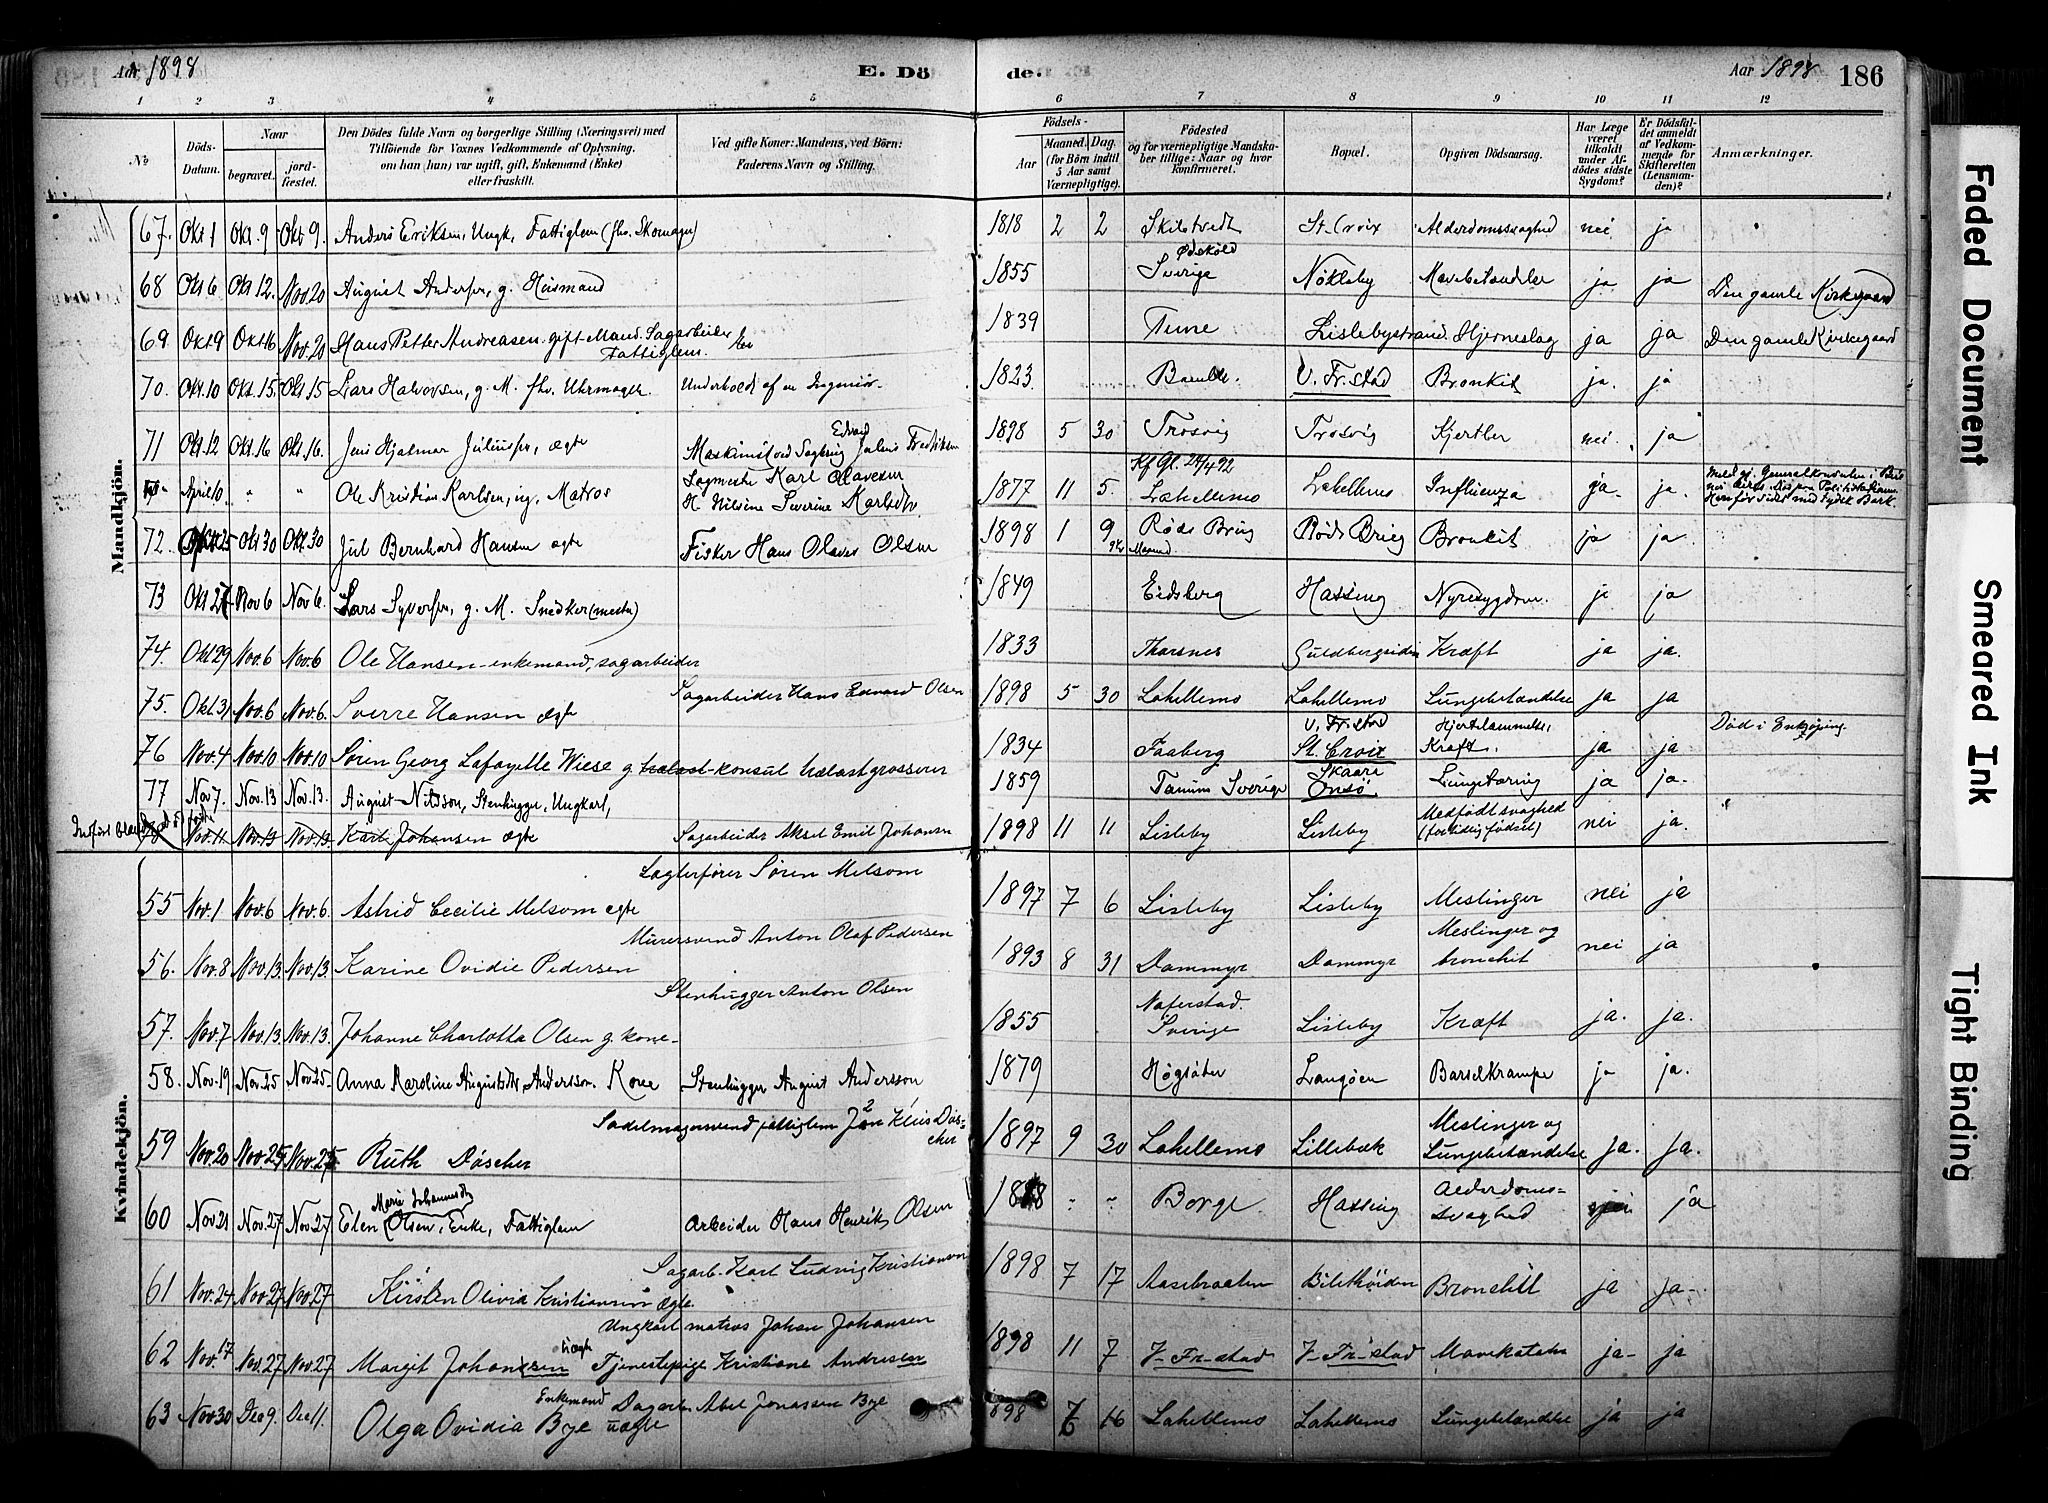 Aar 1898
E. Dö
de.
Aar 1898
186
1 2 3 4 5 6 7 8 9 10 11 12
No
Döds-Datum.
Naar
begravet.
jord-fæstet.
Den Dödes fulde Navn og borgerlige Stilling (Næringsvei) med
Tilföiende for Voxnes Vedkommende af Oplysning,
om han (hun) var ugift, gift, Enkemand (Enke)
eller fraskilt.
Ved gifte Koner: Mandens, ved Börn:
Faderens Navn og Stilling.
Födsels-
Aar
Maaned. Dag.
(for Börn indtil
5 Aar samt
Værnepligtige).
Födested
og for værnepligtige Mandska-
ber tillige: Naar og hvor
konfirmeret.
Bopæl.
Opgiven Dödsaarsag.
Har Læge
været
tilkaldt
under Af-
dödes sidste
Sygdom?
Er Dödsfal-
det anmeldt
af Vedkom-
mende for
Skifteretten
(Lensman-
den)?
Anmærkninger.
Mandkjön.
67. Okt 1 Okt. 9 Okt 9. Anders Eriksen, Ungk, Fattiglem (fhv. Skomager) 1818 2 2 St. Croix Alderdomssvaghed nei ja
68 Okt 6 Okt 12. Nov. 20 August Andersen, g. Husmand 1855 Ödskold Sverige Nökleby ja ja Den gamle Kirkegaard
69. Okt 9 Okt 16 Nov. 20 Hans Petter Andreasen gift Mand. Sagarbeider Fattiglem. 1839 Tune Lislebystrand Hjerneslag ja ja Den gamle Kirkegaard
70. Okt. 10 Okt. 15. Okt 15 Lars Halvorsen, g. M. fhv. Uhrmager. Underholdt af en 1823. Bamble. V. Fr.stad Bronkit ja. ja
71 Okt. 12 Okt. 16 Okt. 16. Jens Hjalmar Juliussen, ægte Maskinist ved Sagbrug Edvard Julius Fredriksen 1898 5 30 Trosvig Trosvig Kjertler nei. ja
April 10. " " Ole Kristian Karlsen, ug. Matros Sagmester Karl Olavesen H. Nilsine Severine Karlsdtr. 1877 11 5. Kf Gl. 24/4 92 Lahellemo Lahellemo Influenza ja. ja.
72. Okt 25 Okt 30 Okt. 30 Jul Bernhard Hansen ægte Fisker Hans Olaves Olsen 1898 1 9 Röds Brug Röds Brug Bronkit ja ja
73 Okt 27 Nov 6 Nov 6. Lars Syversen, g. M. Snedker(mester) 1849 Eidsberg Hassing Nyresygdom. ja ja
74. Okt. 29 Nov. 6 Nov. 6 Ole Hansen enkemand, sagarbeider 1833 Thorsnes Guldbergsiden Kræft ja ja.
75. Okt. 31 Nov. 6 Nov. 6. Sverre Hansen ægte Sagarbeider Hans Edvard Olsen 1898 5 30 Lahellemo Lahellemo Lungebetændelse ja ja
76 Nov. 4 Nov. 10 Nov. 10 Sören Georg Lafayette Wiese g trælast-konsul trælastgrosserer 1834 Faaberg V. Fr.stad St. Croix Hjertelammelse, Kræft. ja ja Död i Enköping
77 Nov 7. Nov. 13 Nov. 13. August Nilsson, Stenhugger, Ungkarl, 1859 Tanum Sverige Skaare Onsö Lungetæring ja ja.
78 Nov. 11 Nov. 13 Nov. 13 Karl Johansen ægte Sagarbeider Aksel Emil Johansen 1898 11 11 Lisleby Lisleby Medfödt svaghed (fortidlig födsel) nei ja.
Kvindekjön.
55 Nov. 1 Nov. 6 Nov. 6. Astrid Cecilie Melsom ægte Lægterförer Sören Melsom 1897 7 6 Lisleby Lisleby Meslinger nei ja
56. Nov. 8 Nov. 13. Nov. 13. Karine Ovidie Pedersen Murersvend Anton Olaf Pedersen 1893 8 31 Dammyr Dammyr Meslinger og bronchit nei ja
57. Nov. 7 Nov. 13. Nov. 13. Johanne Charlotta Olsen g. kone Stenhugger Anton Olsen 1855 Naverstad. Sverige Lisleby Kræft ja. ja.
58. Nov. 19 Nov. 25 Nov 25. Anna Karoline Augustsdtr, Andersson. Kone Stenhugger August Andersson 1879 Högsäter Langöen Barselkrampe ja ja.
59 Nov. 20 Nov. 25 Nov. 25 Ruth Döscher Sadelmagersvend, fattiglem Döscher 1897 9 30 Lahellemo Lillebæk Meslinger og Lungebetændelse ja. ja.
60 Nov 21 Nov. 27 Nov. 27 Elen Marie Johannesdtr Olsen, Enke, Fattiglem Arbeider Hans Henrik Olsen Borge Hassing Alderdoms-svaghed ja
61 Nov. 24 Nov. 27 Nov. 27 Kirsten Olivia Kristiansen ægte Sagarb. Karl Ludvig Kristiansen 1898 7 17 Aasebraaten Bronchitt ja ja
62 Nov. 17 Nov. 27 Nov. 27 Margit Johansen uægte Ungkarl matros Johan Johansen Tjenestepige Kristiane Andresen 1898 11 7 V. Fr.stad V. Fr.stad Mavekatarr ja ja
63 Nov 30 Dec 9. Dec 11. Olga Ovidia Bye uægte Enkemand Dagarb. Abel Jonassen Bye 1898 16 Lahellemo Lahellemo Lungebetændelse ja ja
Faded Document
Smeared Ink
Tight Binding